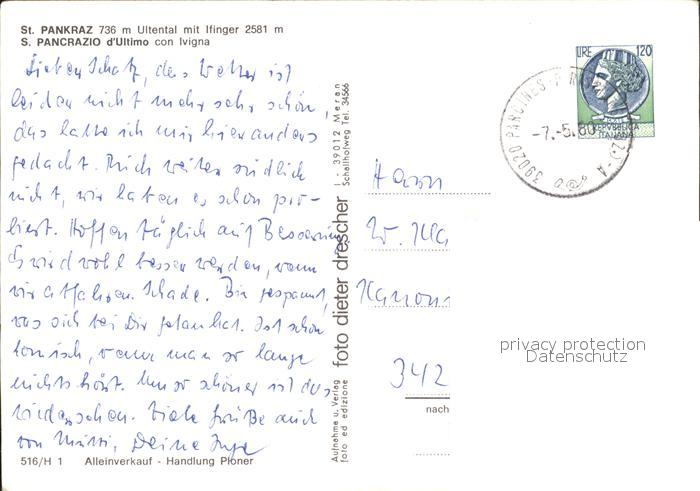 St. PANKRAZ 736 m Ultental mit Ifinger 2581 m
S. PANCRAZIO d'Ultimo con Ivigna
Lieber Schatz, das Wetter ist
leider nicht mehr sehr schön,
das hatte ich mir hier anders
gedacht. Auch weiter südlich
nicht, wir haben es schon pro-
biert. Hoffen täglich auf Besserung.
Es wird wohl besser werden, wenn
wir abfahren. Schade. Bin gespannt,
was sich bei Dir getan hat. Ist schon
komisch, wenn man so lange
nichts hört. Umso schöner ist das
Wiedersehen. Viele Grüße auch
von Mutti, Deine Inge
516/H 1 Alleinverkauf - Handlung Ploner
Aufnahme u. Verlag
foto ed edizione
foto dieter drescher
I - 39012 Meran
Schallhofweg Tel. 34566
LIRE 120
REPUBBLICA
ITALIANA
39020 PARCINES
-7.-5.80
Herrn
W.
342
nach
privacy protection
Datenschutz